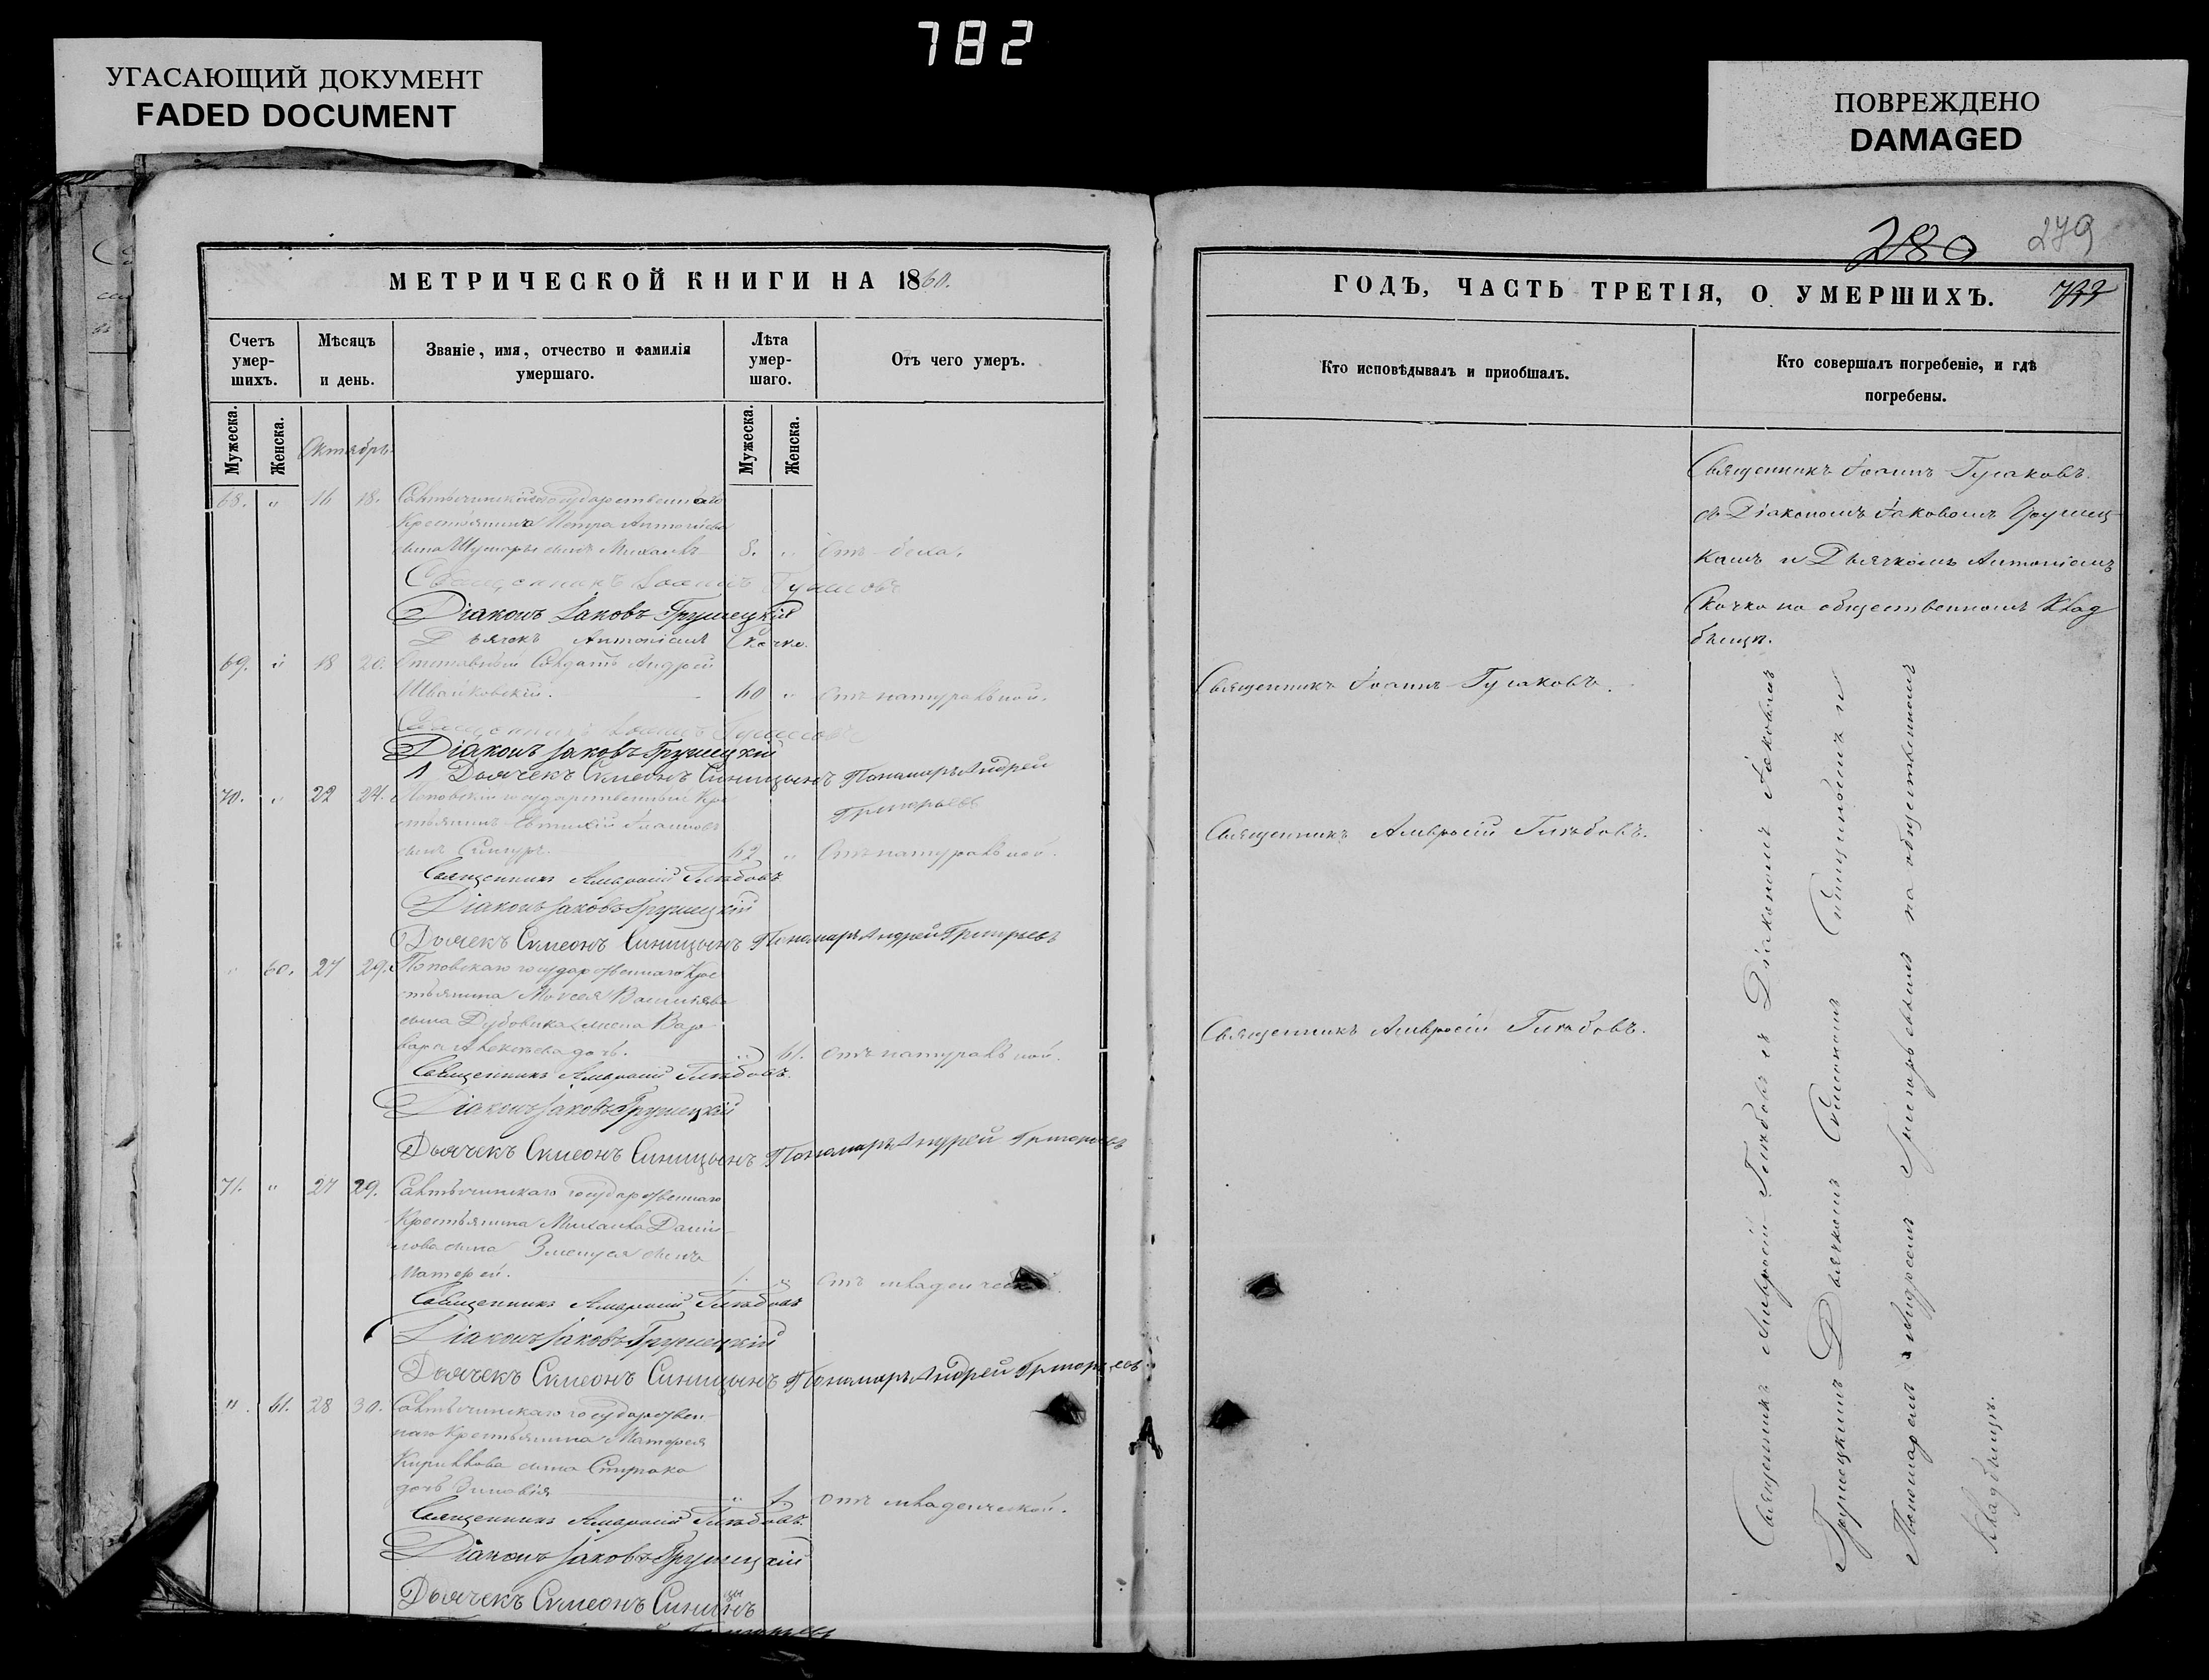 782
УГАСАЮЩИЙ ДОКУМЕНТ
FADED DOCUMENT
ПОВРЕЖДЕНО
DAMAGED
МЕТРИЧЕСКОЙ КНИГИ НА 1860.
Счетъ умер-шихъ.
Мѣсяцъ и день.
Званіе, имя, отчество и фамилія умершаго.
Лѣта умер-шаго.
Отъ чего умеръ.
Мужеска.
Женска.
Мужеска.
Женска.
Октябрь
68. " 16 18. государственнаго
Крестьянина Петра Антоніева
сына сынъ Михаилъ 8. "
Священникъ Іоаннъ Гусаковъ
Діаконъ Іаковъ Грушецкій
Дьячекъ Антоній Скочко.
69. " 18 20. Отставный Солдатъ Андрей
Швайковскій. 60 " Отъ натуральной.
Священникъ Іоаннъ Гусаковъ
Діаконъ Іаковъ Грушецкій
Дьячекъ Симеонъ Синицынъ Пономарь Андрей
Григорьевъ
70. " 22 24. Поповскій государственный Кре
стьянинъ Евтихій Іоанновъ
сынъ 62 " Отъ натуральной.
Священникъ Амвросій Глѣбовъ
Діаконъ Іаковъ Грушецкій
Дьячекъ Симеонъ Синицынъ Пономарь Андрей Григорьевъ
" 60. 27 29. Поповскаго государственнаго Кре
стьянина Моисея Васильева
сына Дубовика жена Вар
вара Алексѣева дочь. " 61. Отъ натуральной.
Священникъ Амвросій Глѣбовъ.
Діаконъ Іаковъ Грушецкій
Дьячекъ Симеонъ Синицынъ Пономарь Андрей Григорьевъ
71. " 27 29. государственнаго
Крестьянина Михаила Даніи
лова сына сынъ
Матфей. 1. " Отъ младенческой.
Священникъ Амвросій Глѣбовъ
Діаконъ Іаковъ Грушецкій
Дьячекъ Симеонъ Синицынъ Пономарь Андрей Григорьевъ
" 61. 28 30. государствен-
наго Крестьянина Матфея
Кириллова сына
дочь Зиновія " 1 Отъ младенческой.
Священникъ Амвросій Глѣбовъ.
Діаконъ Іаковъ Грушецкій
Дьячекъ Симеонъ Синицынъ
280 279
ГОДЪ, ЧАСТЬ ТРЕТІЯ, О УМЕРШИХЪ. 733
Кто исповѣдывалъ и пріобщалъ.
Кто совершалъ погребеніе, и гдѣ погребены.
Священникъ Іоаннъ Гусаковъ.
съ Діакономъ Іаковомъ Грушец
кимъ и Дьячкомъ Антоніемъ
Скочко на общественномъ клад
бищѣ.
Священникъ Іоаннъ Гусаковъ.
Священникъ Амвросій Глѣбовъ.
Священникъ Амвросій Глѣбовъ.
Священникъ Амвросій Глѣбовъ съ Діакономъ Іаковомъ
Грушецкимъ Дьячкомъ Симеономъ Синицынымъ и
Пономаремъ Андреемъ Григорьевымъ на общественномъ
кладбищѣ.